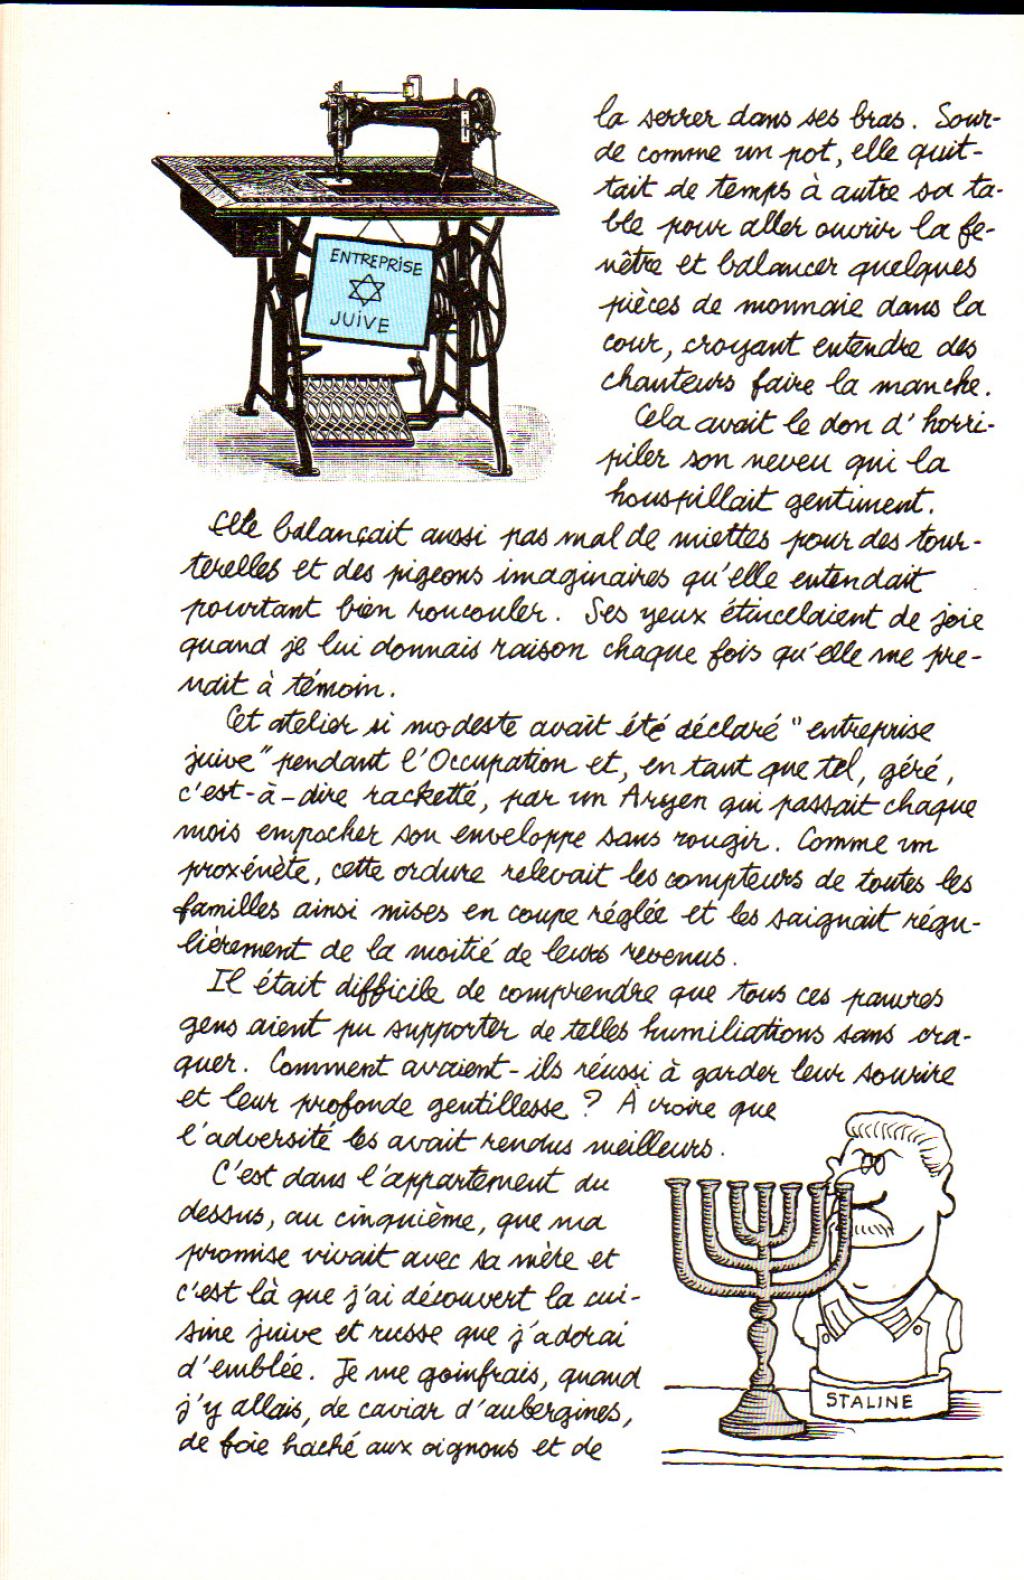 ENTREPRISE
JUIVE
la serrer dans ses bras. Sour-
de comme un pot, elle quit-
tait de temps à autre sa ta-
ble pour aller ouvrir la fe-
nêtre et balancer quelques
pièces de monnaie dans la
cour, croyant entendre des
chanteurs faire la manche.
Cela avait le don d'horri-
piler son neveu qui la
houspillait gentiment.
Elle balançait aussi pas mal de miettes pour des tour-
terelles et des pigeons imaginaires qu'elle entendait
pourtant bien roucouler. Ses yeux étincelaient de joie
quand je lui donnais raison chaque fois qu'elle me pre-
nait à témoin.
Cet atelier si modeste avait été déclaré "entreprise
juive" pendant l'Occupation et, en tant que tel, géré,
c'est-à-dire racketté, par un Aryen qui passait chaque
mois empocher son enveloppe sans rougir. Comme un
proxénète, cette ordure relevait les compteurs de toutes les
familles ainsi mises en coupe réglée et les saignait régu-
lièrement de la moitié de leurs revenus.
Il était difficile de comprendre que tous ces pauvres
gens aient pu supporter de telles humiliations sans cra-
quer. Comment avaient-ils réussi à garder leur sourire
et leur profonde gentillesse ? À croire que
l'adversité les avait rendus meilleurs.
C'est dans l'appartement du
dessus, au cinquième, que ma
promise vivait avec sa mère et
c'est là que j'ai découvert la cui-
sine juive et russe que j'adorai
d'emblée. Je me goinfrais, quand
j'y allais, de caviar d'aubergines,
de foie haché aux oignons et de
STALINE